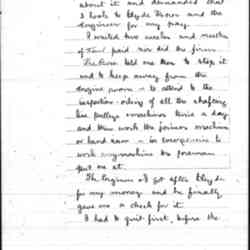 about it and demanded that
I look to Clyde Thorn and the
Engineer for my pay.
I waited two weeks and neither
of paid nor did the firm.
told me then to stop it
and to keep away from the
Engine room to attend to the
inspection oiling of all the shafting
pulleys machines twice a day
and then work the joiner machine
or hand saw in to
work any machine the foreman
put me at.
The Engineer got after Clyde
for my money and he finally
gave me a check for it.
I had to quit first, before the